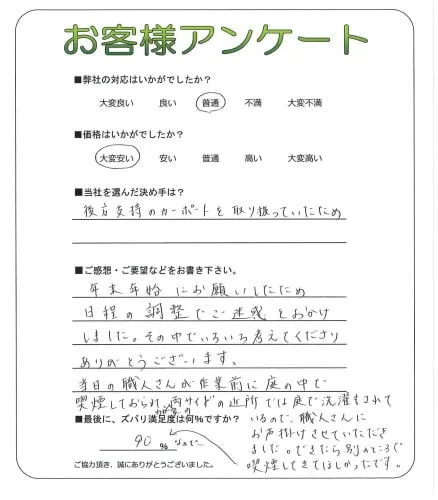 お客様アンケート
■弊社の対応はいかがでしたか？
大変良い 良い 普通 不満 大変不満
■価格はいかがでしたか？
大変安い 安い 普通 高い 大変高い
■当社を選んだ決め手は？
後方支持のカーポートを取り扱っていたため
■ご感想・ご要望などをお書き下さい。
年末年始にお願いしたため
日程の調整でご迷惑をおかけ
しました。その中でいろいろ考えてくださり
ありがとうございます。
当日の職人さんが作業前に庭の中で
喫煙しておられ、両サイドの近所では庭で洗濯をされて
いるので、職人さんに
お声掛けさせていただき
ました。できたら別のところで
喫煙してきてほしかったです。
■最後に、ズバリ満足度は何%ですか？
90 % なので…
ご協力頂き、誠にありがとうございました。